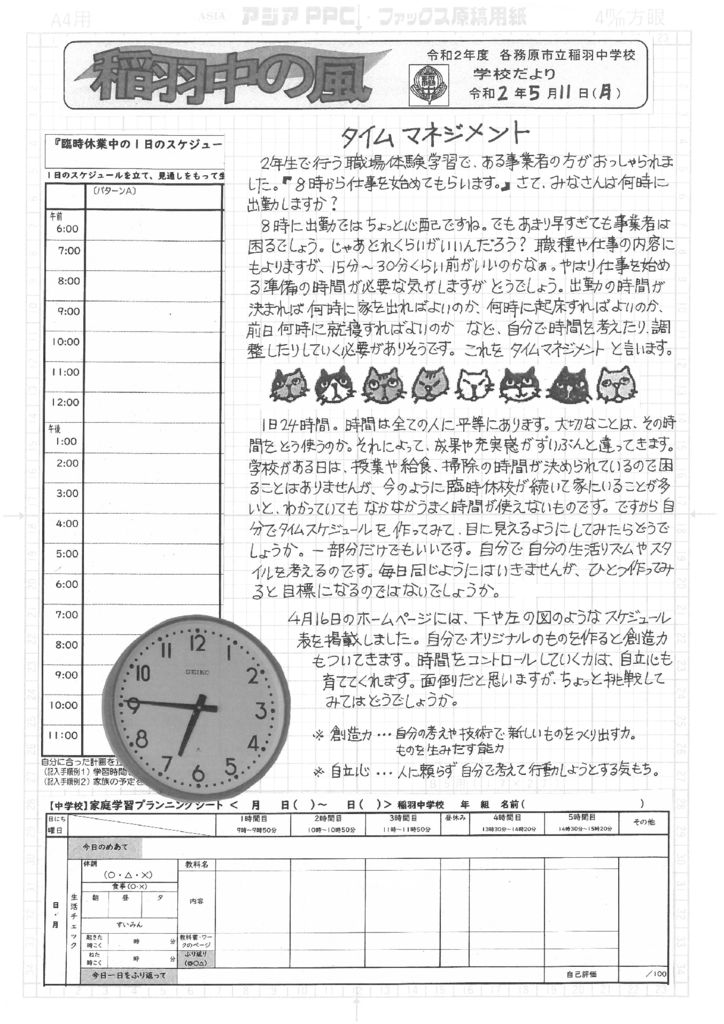 A4用
ASIA アジア PPC・ファックス原稿用紙
4m/m方眼
稲羽中の風
令和2年度 各務原市立稲羽中学校
学校だより
令和2年5月11日(月)
『臨時休業中の1日のスケジュー
1日のスケジュールを立て、見通しをもって生
〔パターンA〕
午前
6:00
7:00
8:00
9:00
10:00
11:00
12:00
午後
1:00
2:00
3:00
4:00
5:00
6:00
7:00
8:00
9:00
10:00
11:00
自分に合った計画を立
(記入手順例1)学習時間
(記入手順例2)家族の予定を
タイムマネジメント
2年生で行う職場体験学習で、ある事業者の方がおっしゃられま
した。『8時から仕事を始めてもらいます。』さて、みなさんは何時に
出勤しますか?
8時に出勤ではちょっと心配ですね。でもあまり早すぎても事業者は
困るでしょう。じゃあどれくらいがいいんだろう? 職種や仕事の内容に
もよりますが、15分~30分くらい前がいいのかなぁ。やはり仕事を始め
る準備の時間が必要な気がしますがどうでしょう。出勤の時間が
決まれば何時に家を出ればよいのか、何時に起床すればよいのか、
前日何時に就寝すればよいのか など、自分で時間を考えたり、調
整したりしていく必要がありそうです。これをタイムマネジメントと言います。
1日24時間。時間は全ての人に平等にあります。大切なことは、その時
間をどう使うのか。それによって、成果や充実感がずいぶんと違ってきます。
学校がある日は、授業や給食、掃除の時間が決められているので困
ることはありませんが、今のように臨時休校が続いて家にいることが多
いと、わかっていてもなかなかうまく時間が使えないものです。ですから自
分でタイムスケジュールを作ってみて、目に見えるようにしてみたらどうで
しょうか。一部分だけでもいいです。自分で自分の生活リズムやスタ
イルを考えるのです。毎日同じようにはいきませんが、ひとつ作ってみ
ると目標になるのではないでしょうか。
4月16日のホームページには、下や左の図のようなスケジュール
表を掲載しました。自分でオリジナルのものを作ると創造力
もついてきます。時間をコントロールしていく力は、自立心も
育ててくれます。面倒だと思いますが、ちょっと挑戦して
みてはどうでしょうか。
※ 創造力…自分の考えや技術で新しいものをつくり出す力。
ものを生みだす能力
※ 自立心…人に頼らず自分で考えて行動しようとする気もち。
12
1
2
3
4
5
6
7
8
9
10
11
SEIKO
【中学校】家庭学習プランニングシート < 月 日( )~ 日( )> 稲羽中学校 年 組 名前( )
日にち 曜日
1時間目 9時~9時50分
2時間目 10時~10時50分
3時間目 11時~11時50分
昼休み
4時間目 13時30分~14時20分
5時間目 14時30分~15時20分
その他
今日のめあて
日・月
生活チェック
体調
(○・△・×)
食事(○・×)
朝 昼 夕
すいみん
起きた時こく 時 分
ねた時こく 時 分
教科名
内容
教科書・ワークのページ
ふり返り
(◎○△)
今日一日をふり返って
自己評価
/100